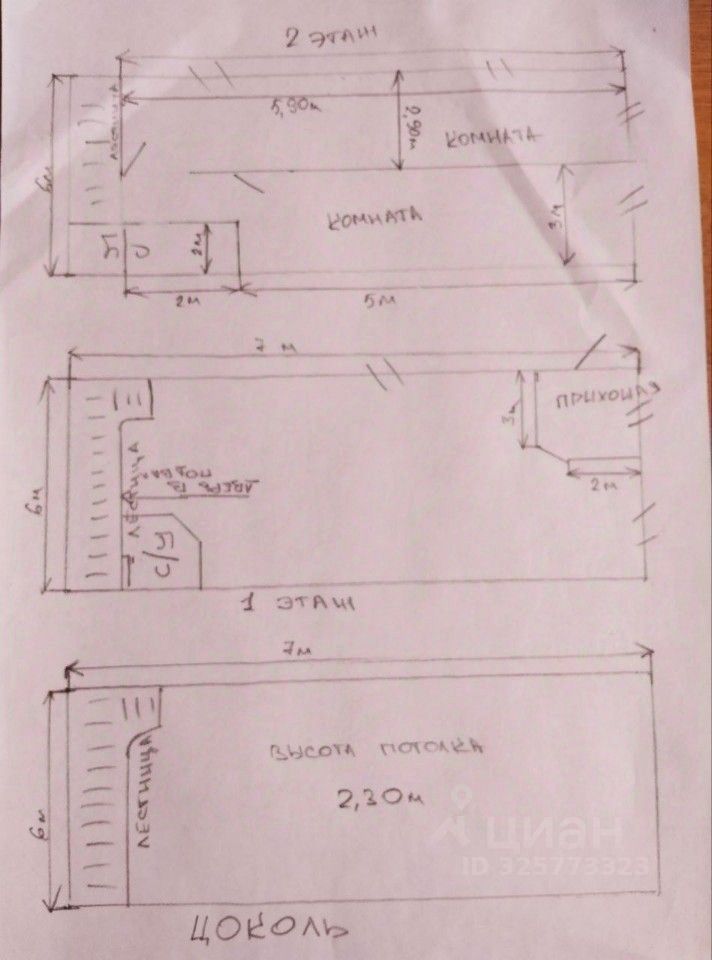 2 ЭТАЖ
ЛЕСТНИЦА
5,90м
2,90м
КОМНАТА
6м
КОМНАТА
3м
С/У
2м
2м
5м
7 м
ПРИХОЖАЯ
3м
2м
6м
ЛЕСТНИЦА
С/У
1 ЭТАЖ
7м
ВЫСОТА ПОТОЛКА
2,30м
6м
ЛЕСТНИЦА
циан
ID 325773323
ЦОКОЛЬ